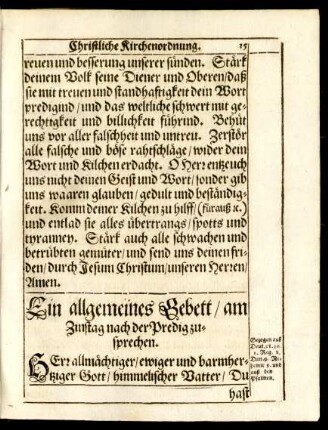 Christliche Kirchenordnung. 15
reuen und besserung unserer sünden. Stärk
deinem Volk seine Diener und Oberen/daß
sie mit treuen und standhaftigkeit dein Wort
predigind/und das weltliche schwert mit ge-
rechtigkeit und billichkeit führind. Behüt
uns vor aller falschheit und untreu. Zerstör
alle falsche und böse rahtschläge/wider dein
Wort und Kilchen erdacht. O Herr entzeuch
uns nicht deinen Geist und Wort/sonder gib
uns waaren glauben/gedult und beständig-
keit. Komm deiner Kilchen zu hilff/(fürauß ꝛc.)
und entlad sie alles übertrangs/spotts und
tyranney. Stärk auch alle schwachen und
betrübten gemüter/und send uns deinen fri-
den/durch Jesum Christum/unseren Herren/
Amen.
Ein allgemeines Gebett/am
Zinstag nach der Predig zu-
sprechen.
HErr allmächtiger/ewiger und barmher-
tziger Gott/himmelischer Vatter/Du
hast
Gezogen auß
1. Reg.
auß den
Psalmen.